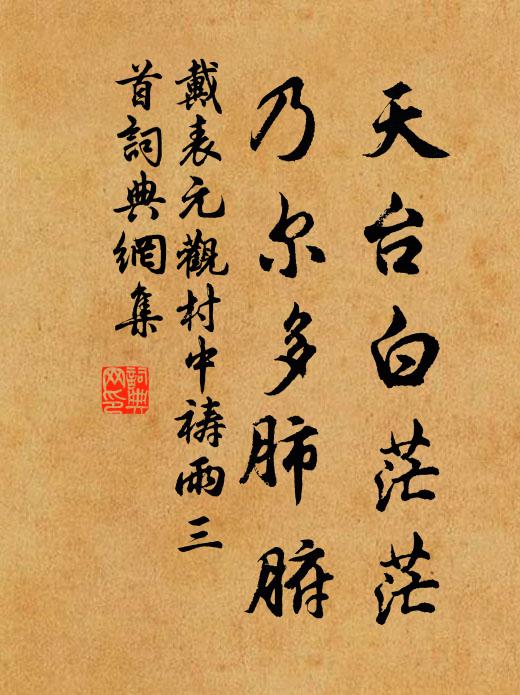 天台白茫茫
乃尔多肺腑
戴表元觀村中禱雨三
首詞典網集
詞典
网印